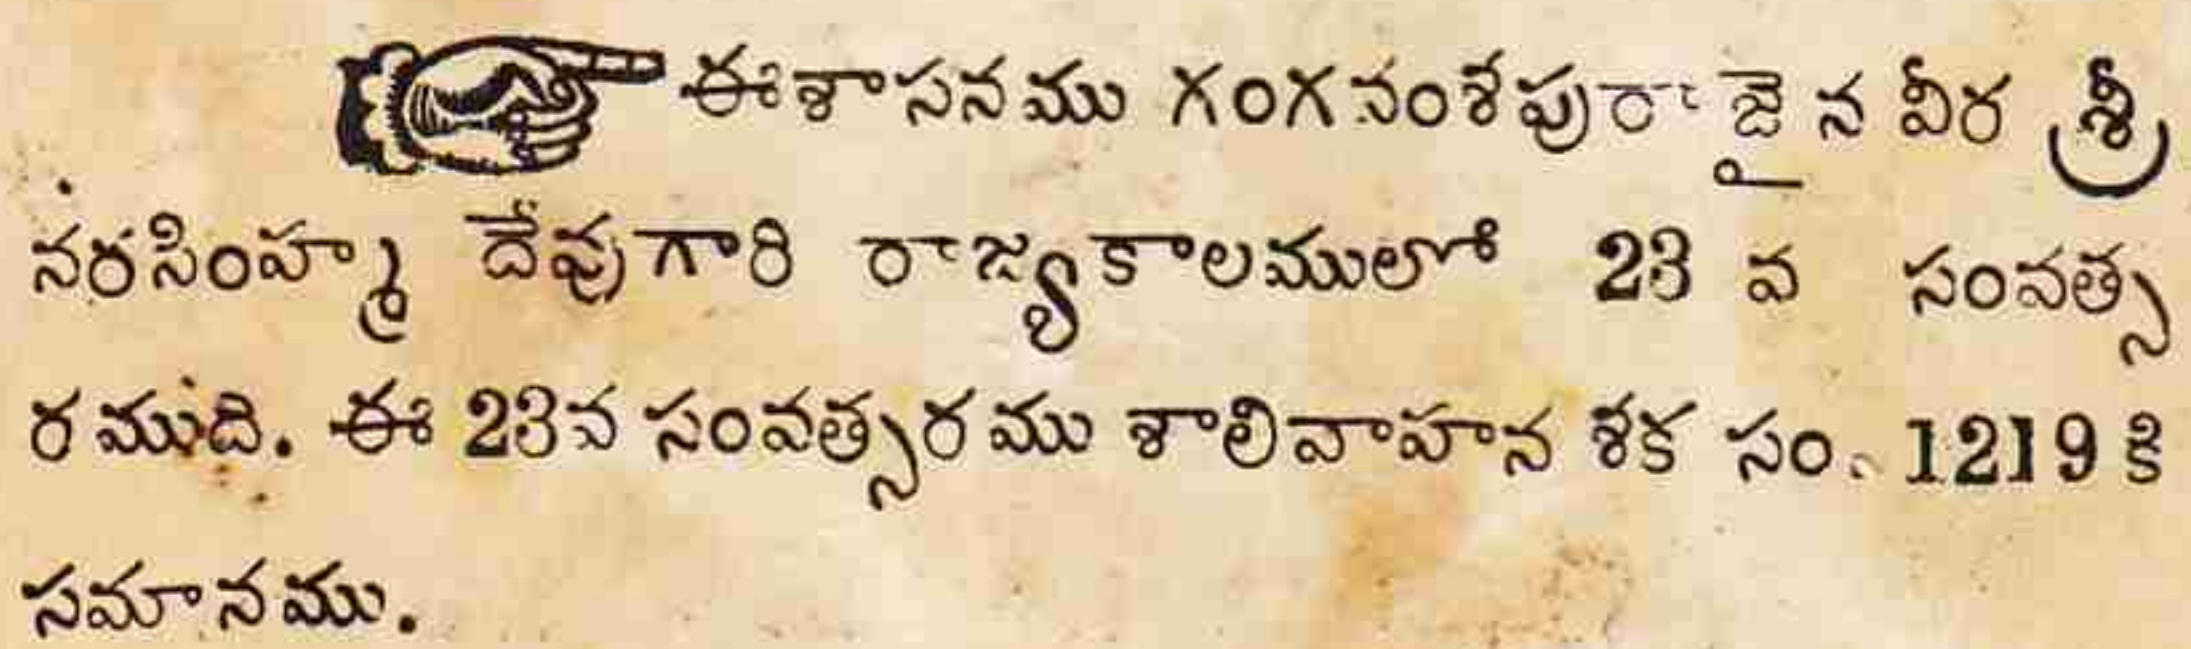 ఈశాసనము గంగవంశపురాజైన వీర శ్రీ
నరసింహ్మ దేవుగారి రాజ్యకాలములో 23 వ సంవత్స
రముది. ఈ 23వ సంవత్సరము శాలివాహన శక సం. 1219 కి
సమానము.